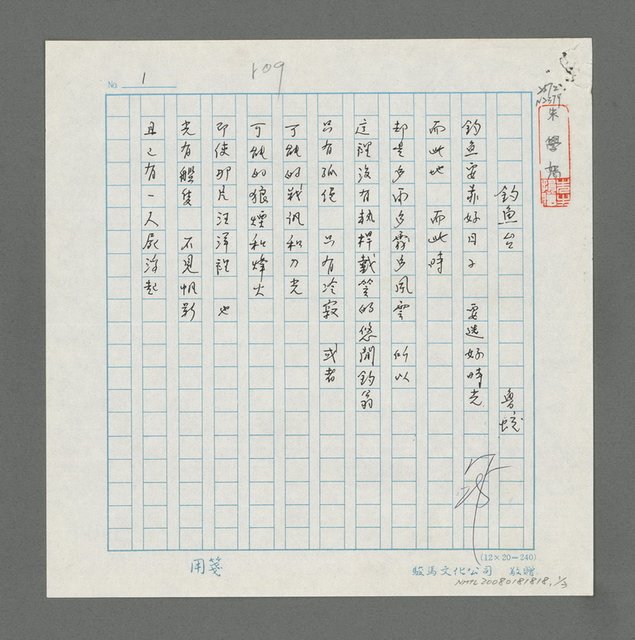 No. 1
109
釣魚台
魯蛟
釣魚要若好日子 要選好時光
而此地 而此時
卻是多雨多霧多風雲 所以
這裡沒有執桿戴笠的悠閒釣翁
只有孤絕 只有冷寂 或者
可能的戰帆和刀光
可能的狼煙和烽火
即使那片汪洋裡 也
光有艦隻 不見帆影
且已有一人屍浮起
朱學恕
(12×20=240)
駿馬文化公司 敬贈
用箋
NMTL20080181818, 1/3